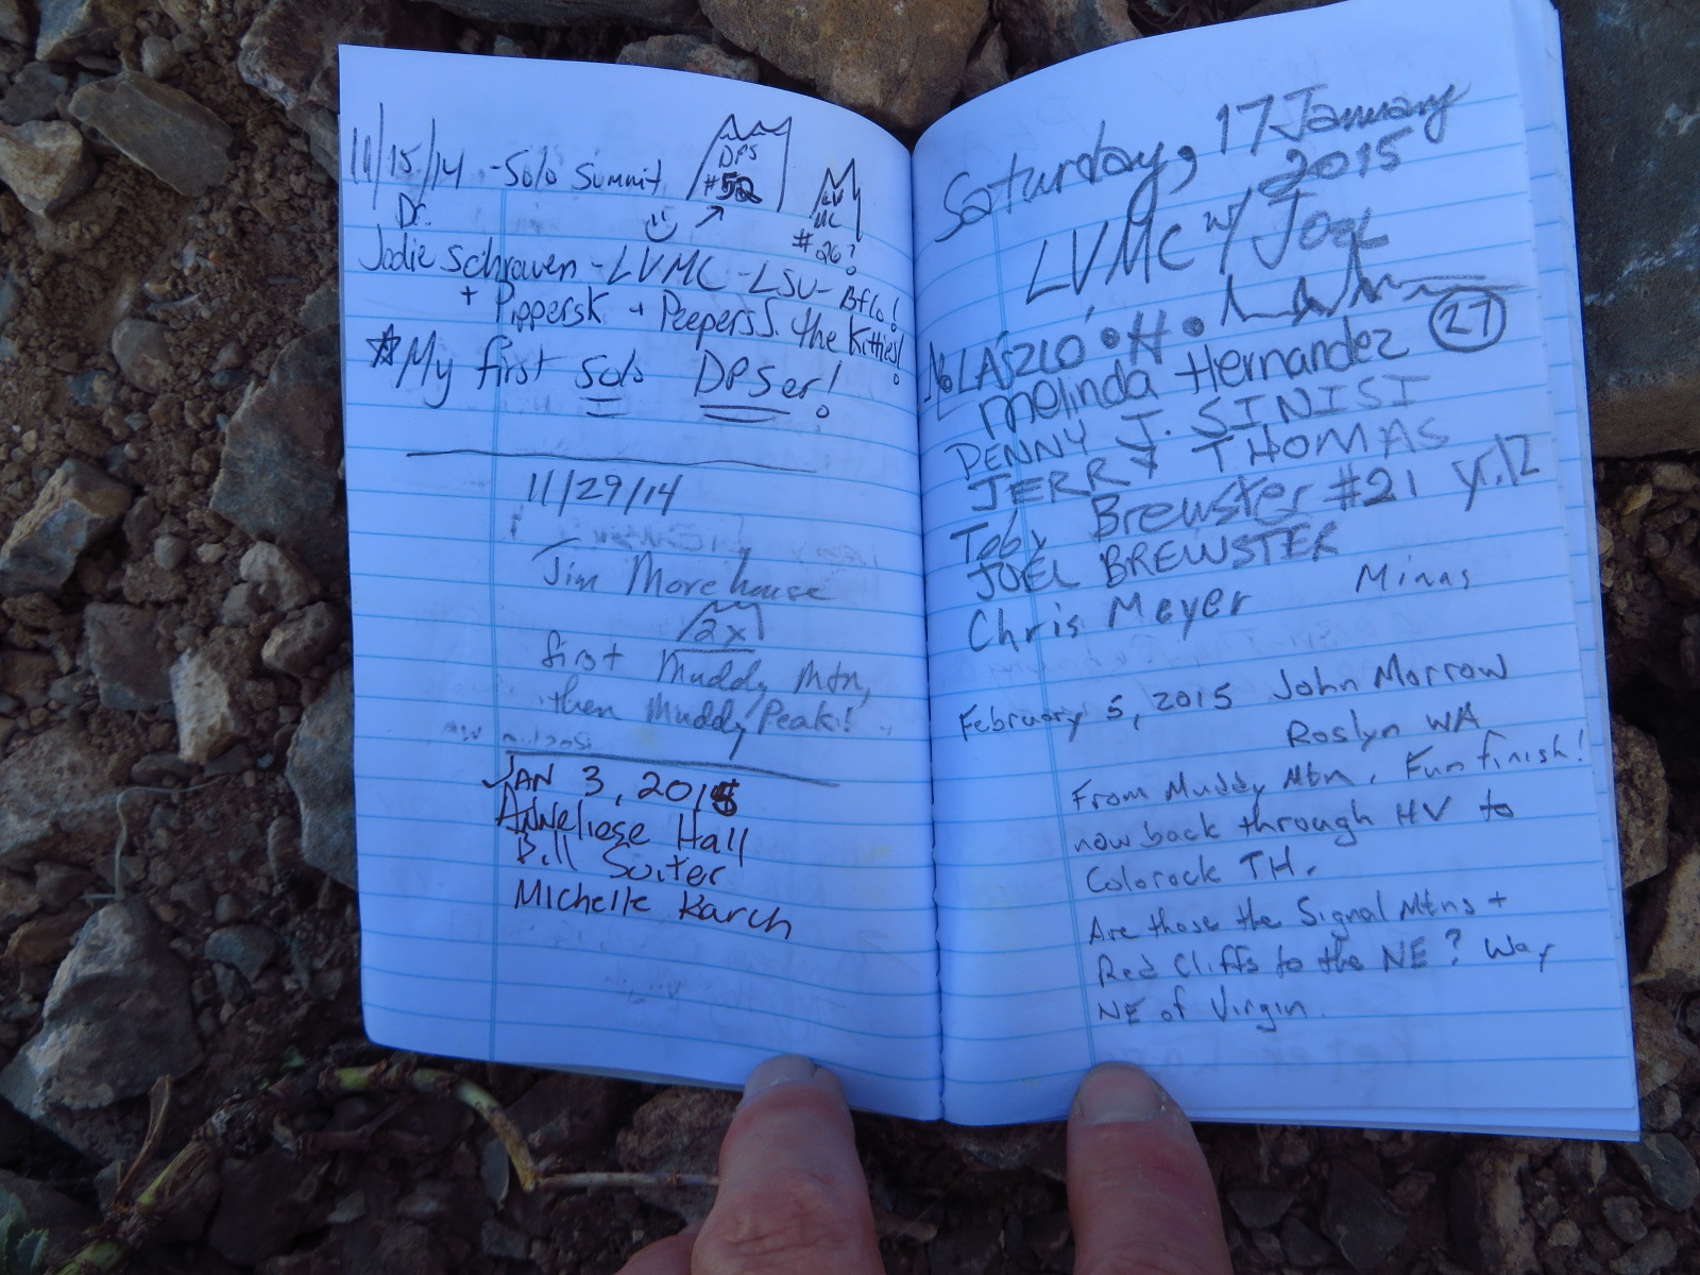 11/15/14 - Solo Summit DPS #52
LV MC #26!
Dr.
Jodie Schraven - LVMC - LSU - Bflo!
+ Pippersk + Peepers S. the Kitties!
☆ My first solo DPSer!
11/29/14
Jim Morehouse
2x
first Muddy Mtn,
then Muddy Peak!
JAN 3, 2015
Anneliese Hall
Bill Suiter
Michelle Karch
Saturday, 17 January
2015
LVMC w/ Joel
LÁSZLÓ • H •
Melinda Hernandez 27
PENNY J. SINISI
JERRY THOMAS
Toby Brewster #21 yr. 12
JOEL BREWSTER
Chris Meyer Minas
February 5, 2015 John Morrow
Roslyn WA
From Muddy Mtn. Fun finish!
now back through HV to
Colorock TH.
Are those the Signal Mtns +
Red Cliffs to the NE? Way
NE of Virgin.